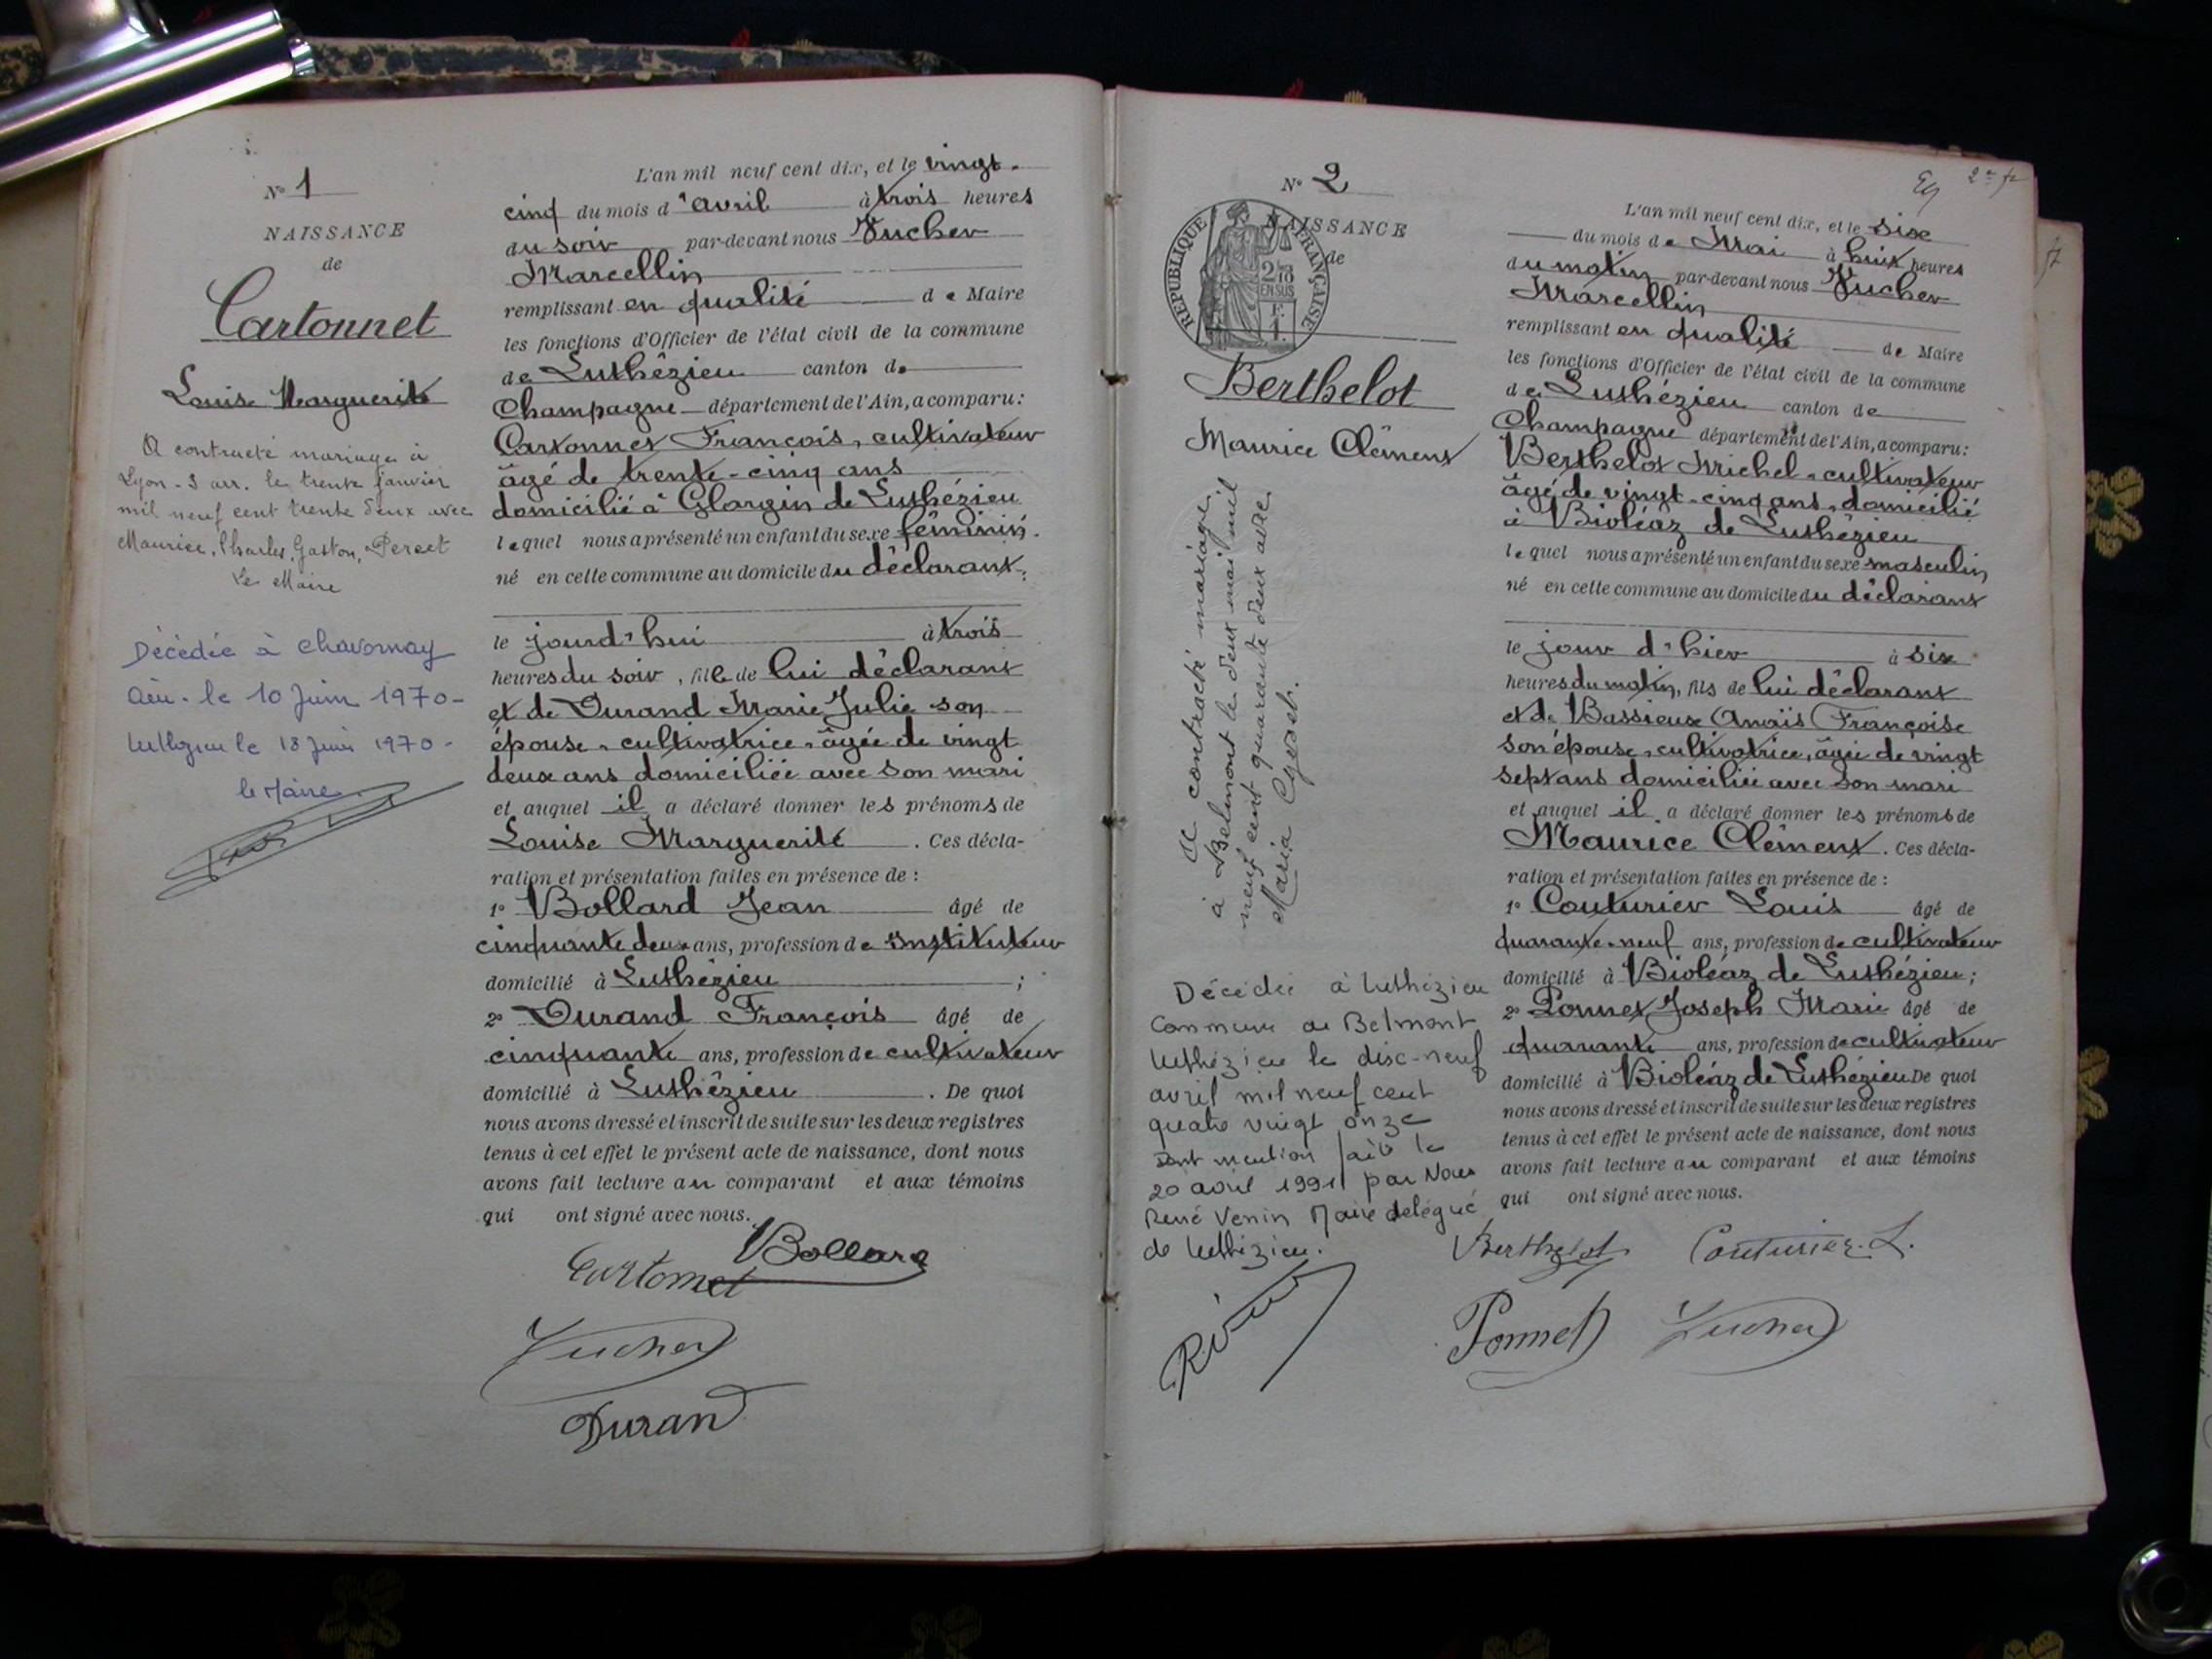 N° 1
NAISSANCE
de
Cartonnet
Louise Marguerite
A contracté mariage à
Lyon - 3 arr. le trente janvier
mil neuf cent trente deux avec
Maurice, Charles, Gaston, Percet
Le Maire
Décédée à Chavornay
Ain. le 10 Juin 1970 -
Luthézieu le 18 Juin 1970 -
le Maire
L'an mil neuf cent dix, et le vingt-
cinq du mois d'avril à trois heures
du soir par-devant nous Fucher
Marcellin
remplissant en qualité de Maire
les fonctions d'Officier de l'état civil de la commune
de Luthézieu canton de
Champagne département de l'Ain, a comparu :
Cartonnet François, cultivateur
âgé de trente-cinq ans
domicilié à Glargin de Luthézieu
lequel nous a présenté un enfant du sexe féminin.
né en cette commune au domicile du déclarant,
le jourd'hui à trois
heures du soir, fille de lui déclarant
et de Durand Marie Julie son
épouse, cultivatrice, âgée de vingt
deux ans domiciliée avec son mari
et auquel il a déclaré donner les prénoms de
Louise Marguerite. Ces décla-
ration et présentation faites en présence de :
1° Bollard Jean âgé de
cinquante deux ans, profession de Instituteur
domicilié à Luthézieu ;
2° Durand François âgé de
cinquante ans, profession de cultivateur
domicilié à Luthézieu. De quoi
nous avons dressé et inscrit de suite sur les deux registres
tenus à cet effet le présent acte de naissance, dont nous
avons fait lecture au comparant et aux témoins
qui ont signé avec nous.
Bollard
Cartonnet
Fucher
Durand
N° 2
NAISSANCE
de
RÉPUBLIQUE FRANÇAISE
2/10
EN SUS
F.
1.
Berthelot
Maurice Clément
A contracté mariage
à Belmont le deux mai mil
neuf cent quarante deux avec
Maria
Décédé à Luthézieu
Commune de Belmont
Luthézieu le dix-neuf
avril mil neuf cent
quatre vingt onze
dont mention faite le
20 avril 1991 par Nous
René Venin Maire délégué
de Luthézieu.
2e f
L'an mil neuf cent dix, et le six
du mois de Mai à huit heures
du matin par-devant nous Fucher
Marcellin
remplissant en qualité de Maire
les fonctions d'Officier de l'état civil de la commune
de Luthézieu canton de
Champagne département de l'Ain, a comparu :
Berthelot Michel, cultivateur
âgé de vingt-cinq ans, domicilié
à Bioléaz de Luthézieu
lequel nous a présenté un enfant du sexe masculin
né en cette commune au domicile du déclarant
le jour d'hier à six
heures du matin, fils de lui déclarant
et de Bassieux Anaïs Françoise
son épouse, cultivatrice, âgée de vingt
sept ans domiciliée avec son mari
et auquel il a déclaré donner les prénoms de
Maurice Clément. Ces décla-
ration et présentation faites en présence de :
1° Couturier Louis âgé de
quarante-neuf ans, profession de cultivateur
domicilié à Bioléaz de Luthézieu ;
2° Ponnet Joseph Marie âgé de
quarante ans, profession de cultivateur
domicilié à Bioléaz de Luthézieu De quoi
nous avons dressé et inscrit de suite sur les deux registres
tenus à cet effet le présent acte de naissance, dont nous
avons fait lecture au comparant et aux témoins
qui ont signé avec nous.
Berthelot Couturier. L.
Ponnet Fucher